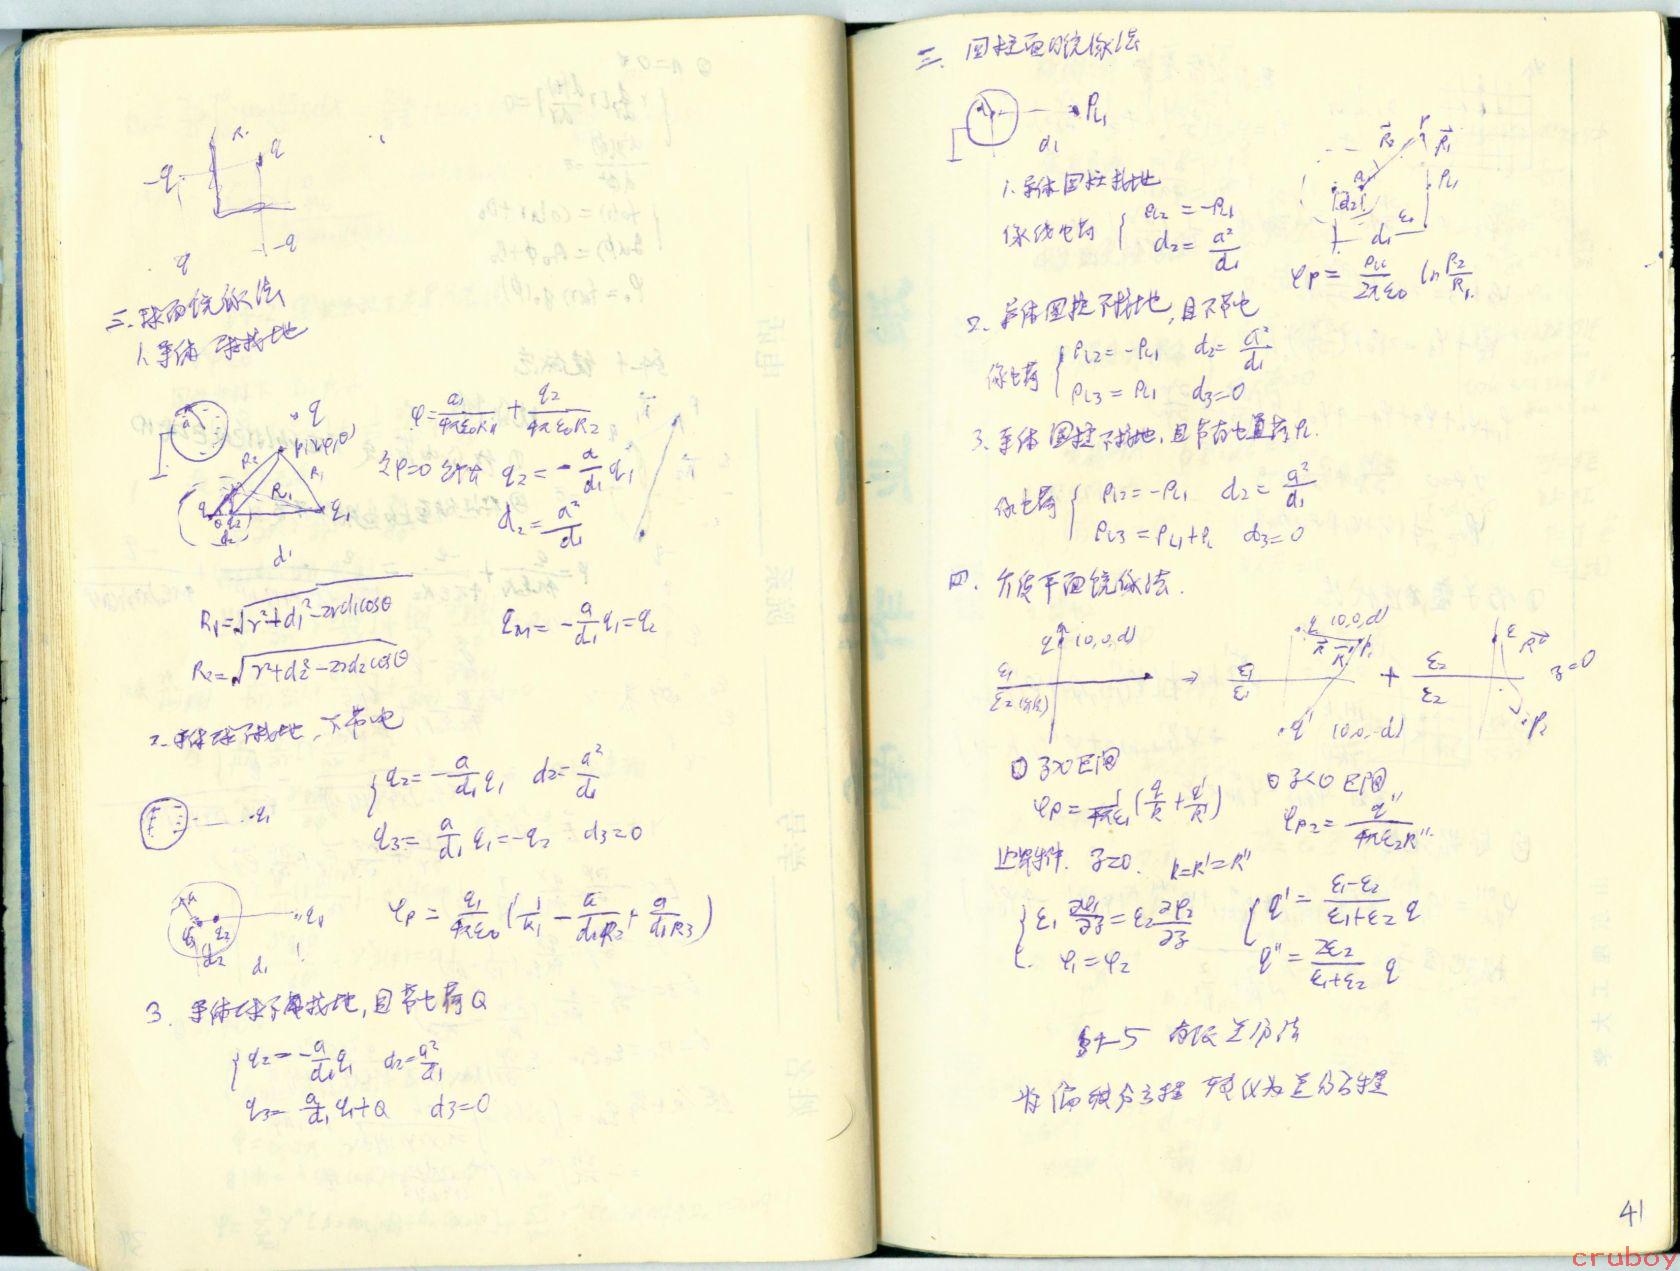 R₁
q
-q
-q
q
二.球面镜像法
1.导体球接地
a
q
P(r,φ,θ)
R₂
R₁
q₂
d₂
q₁
d₁
φ=q₁/4πε₀R₁ + q₂/4πε₀R₂
令φ=0 q₂=-a/d₁ q₁
d₂=a²/d₁
R₁=√r²+d₁²-2rd₁cosθ
R₂=√r²+d₂²-2rd₂cosθ
q_{Σ1}= -a/d₁ q₁=q₂
2.导体球不接地,不带电
q₁
{q₂=-a/d₁ q₁ d₂=a²/d₁
q₃=a/d₁ q₁=-q₂ d₃=0
a
q₃ q₂
q₁
d₂
d₁
φp=q₁/4πε₀(1/R₁ - a/d₁R₂ + a/d₁R₃)
3.导体球不接地,且带电荷Q
{q₂=-a/d₁ q₁ d₂=a²/d₁
q₃=a/d₁ q₁+Q d₃=0
三.圆柱面的镜像法
a
ρL₁
d₁
1.导体圆柱接地
像线电荷 { ρL₂=-ρL₁
d₂=a²/d₁
P
R₂
R₁
a
ρL₁
d₂
d₁
ε₀
φp=ρL₁/2πε₀ ln R₂/R₁
2.导体圆柱不接地,且不带电
像电荷 { ρL₂=-ρL₁ d₂=a²/d₁
ρL₃=ρL₁ d₃=0
3.导体圆柱不接地,且带有电荷ρL.
像电荷 { ρL₂=-ρL₁ d₂=a²/d₁
ρL₃=ρL₁+ρL d₃=0
四.介质平面镜像法.
q (0,0,d)
ε₁
ε₂
⇒
q (0,0,d)
R
R'
P₁
ε₁
ε₁
q' (0,0,-d)
+
ε₂
ε₂
R''
P₂
z=0
z>0区间
φp=1/4πε₁(q/R+q'/R')
z<0区间
φp₂=q''/4πε₂R''
边界条件. z=0. R=R'=R''
{ε₁ ∂φ₁/∂z=ε₂ ∂φ₂/∂z
φ₁=φ₂
{q'=ε₁-ε₂/ε₁+ε₂ q
q''=2ε₂/ε₁+ε₂ q
-5 有限差分法
将偏微分方程转化为差分方程
41
cruboy